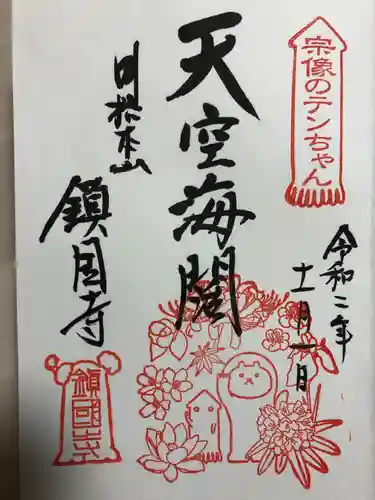 宗像のテンちゃん
令和二年
十一月一日
天空海闊
屏風山
鎮国寺
鎮國寺